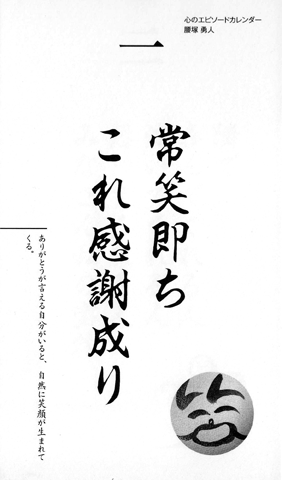 心のエピソードカレンダー
腰塚 勇人
一
常笑即ち
これ感謝成り
ありがとうが言える自分がいると、自然に笑顔が生まれて
くる。
笑